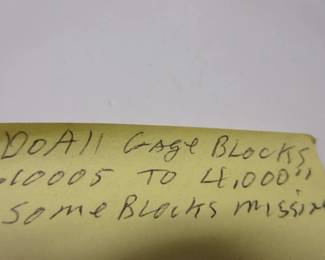 DoAll Gage Blocks
.10005 TO 4.000"
Some Blocks missin